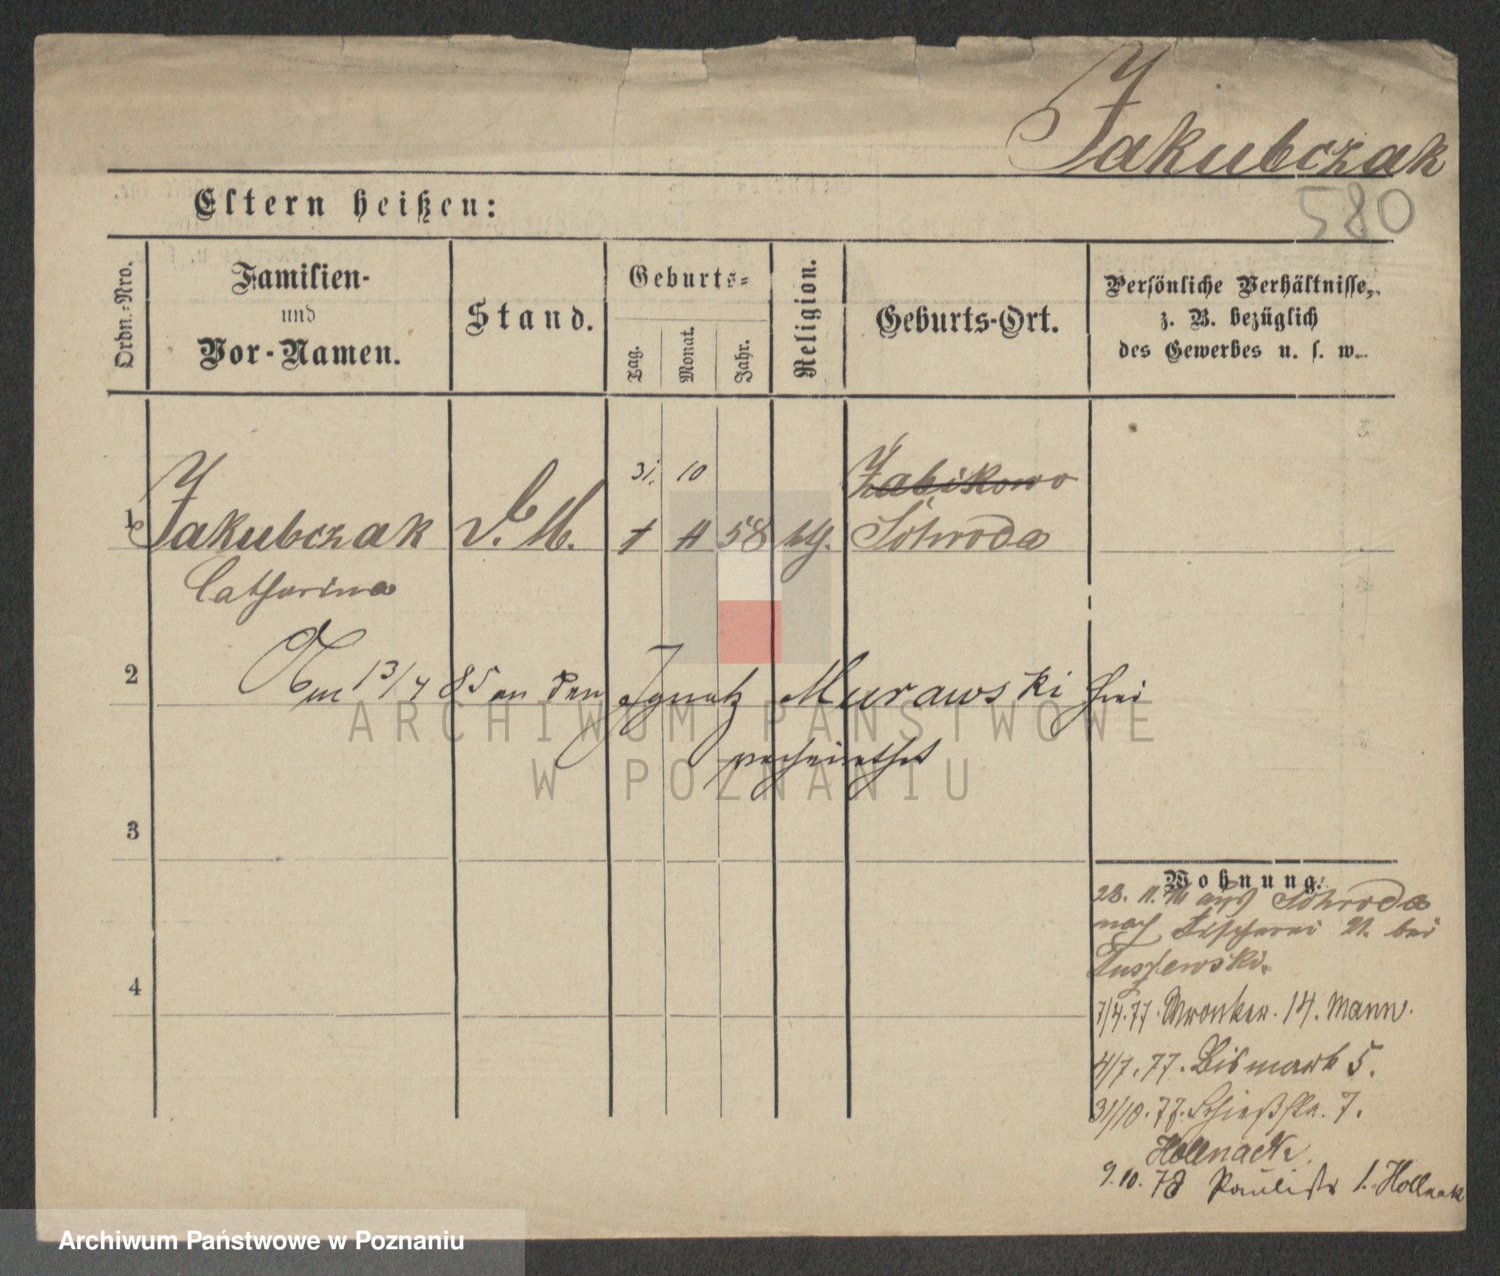 Jakubczak
580
Eltern heißen:
Ordn.-Nro.
Familien-
und
Vor-Namen.
Stand.
Geburts-
Tag.
Monat.
Jahr.
Religion.
Geburts-Ort.
Persönliche Verhältnisse,
z. B. bezüglich
des Gewerbes u. s. w.
31. 10
Zabikowo
1 Jakubczak D. M. 58 Schroda
Catharina
2 Am 13/4 85 an den Ignatz Murawski hier
verheirathet
3
4
Wohnung.
28. 11. 76 aus Schroda
nach Fischerei 21. bei
7/4.77. Wronker. 14. Mann.
4/7.77. Bismark 5.
31/10.77. Schießstr. 7.
Hollnack.
9.10.78 Paulistr 1. Hollnack
ARCHIWUM PAŃSTWOWE
W POZNANIU
Archiwum Państwowe w Poznaniu